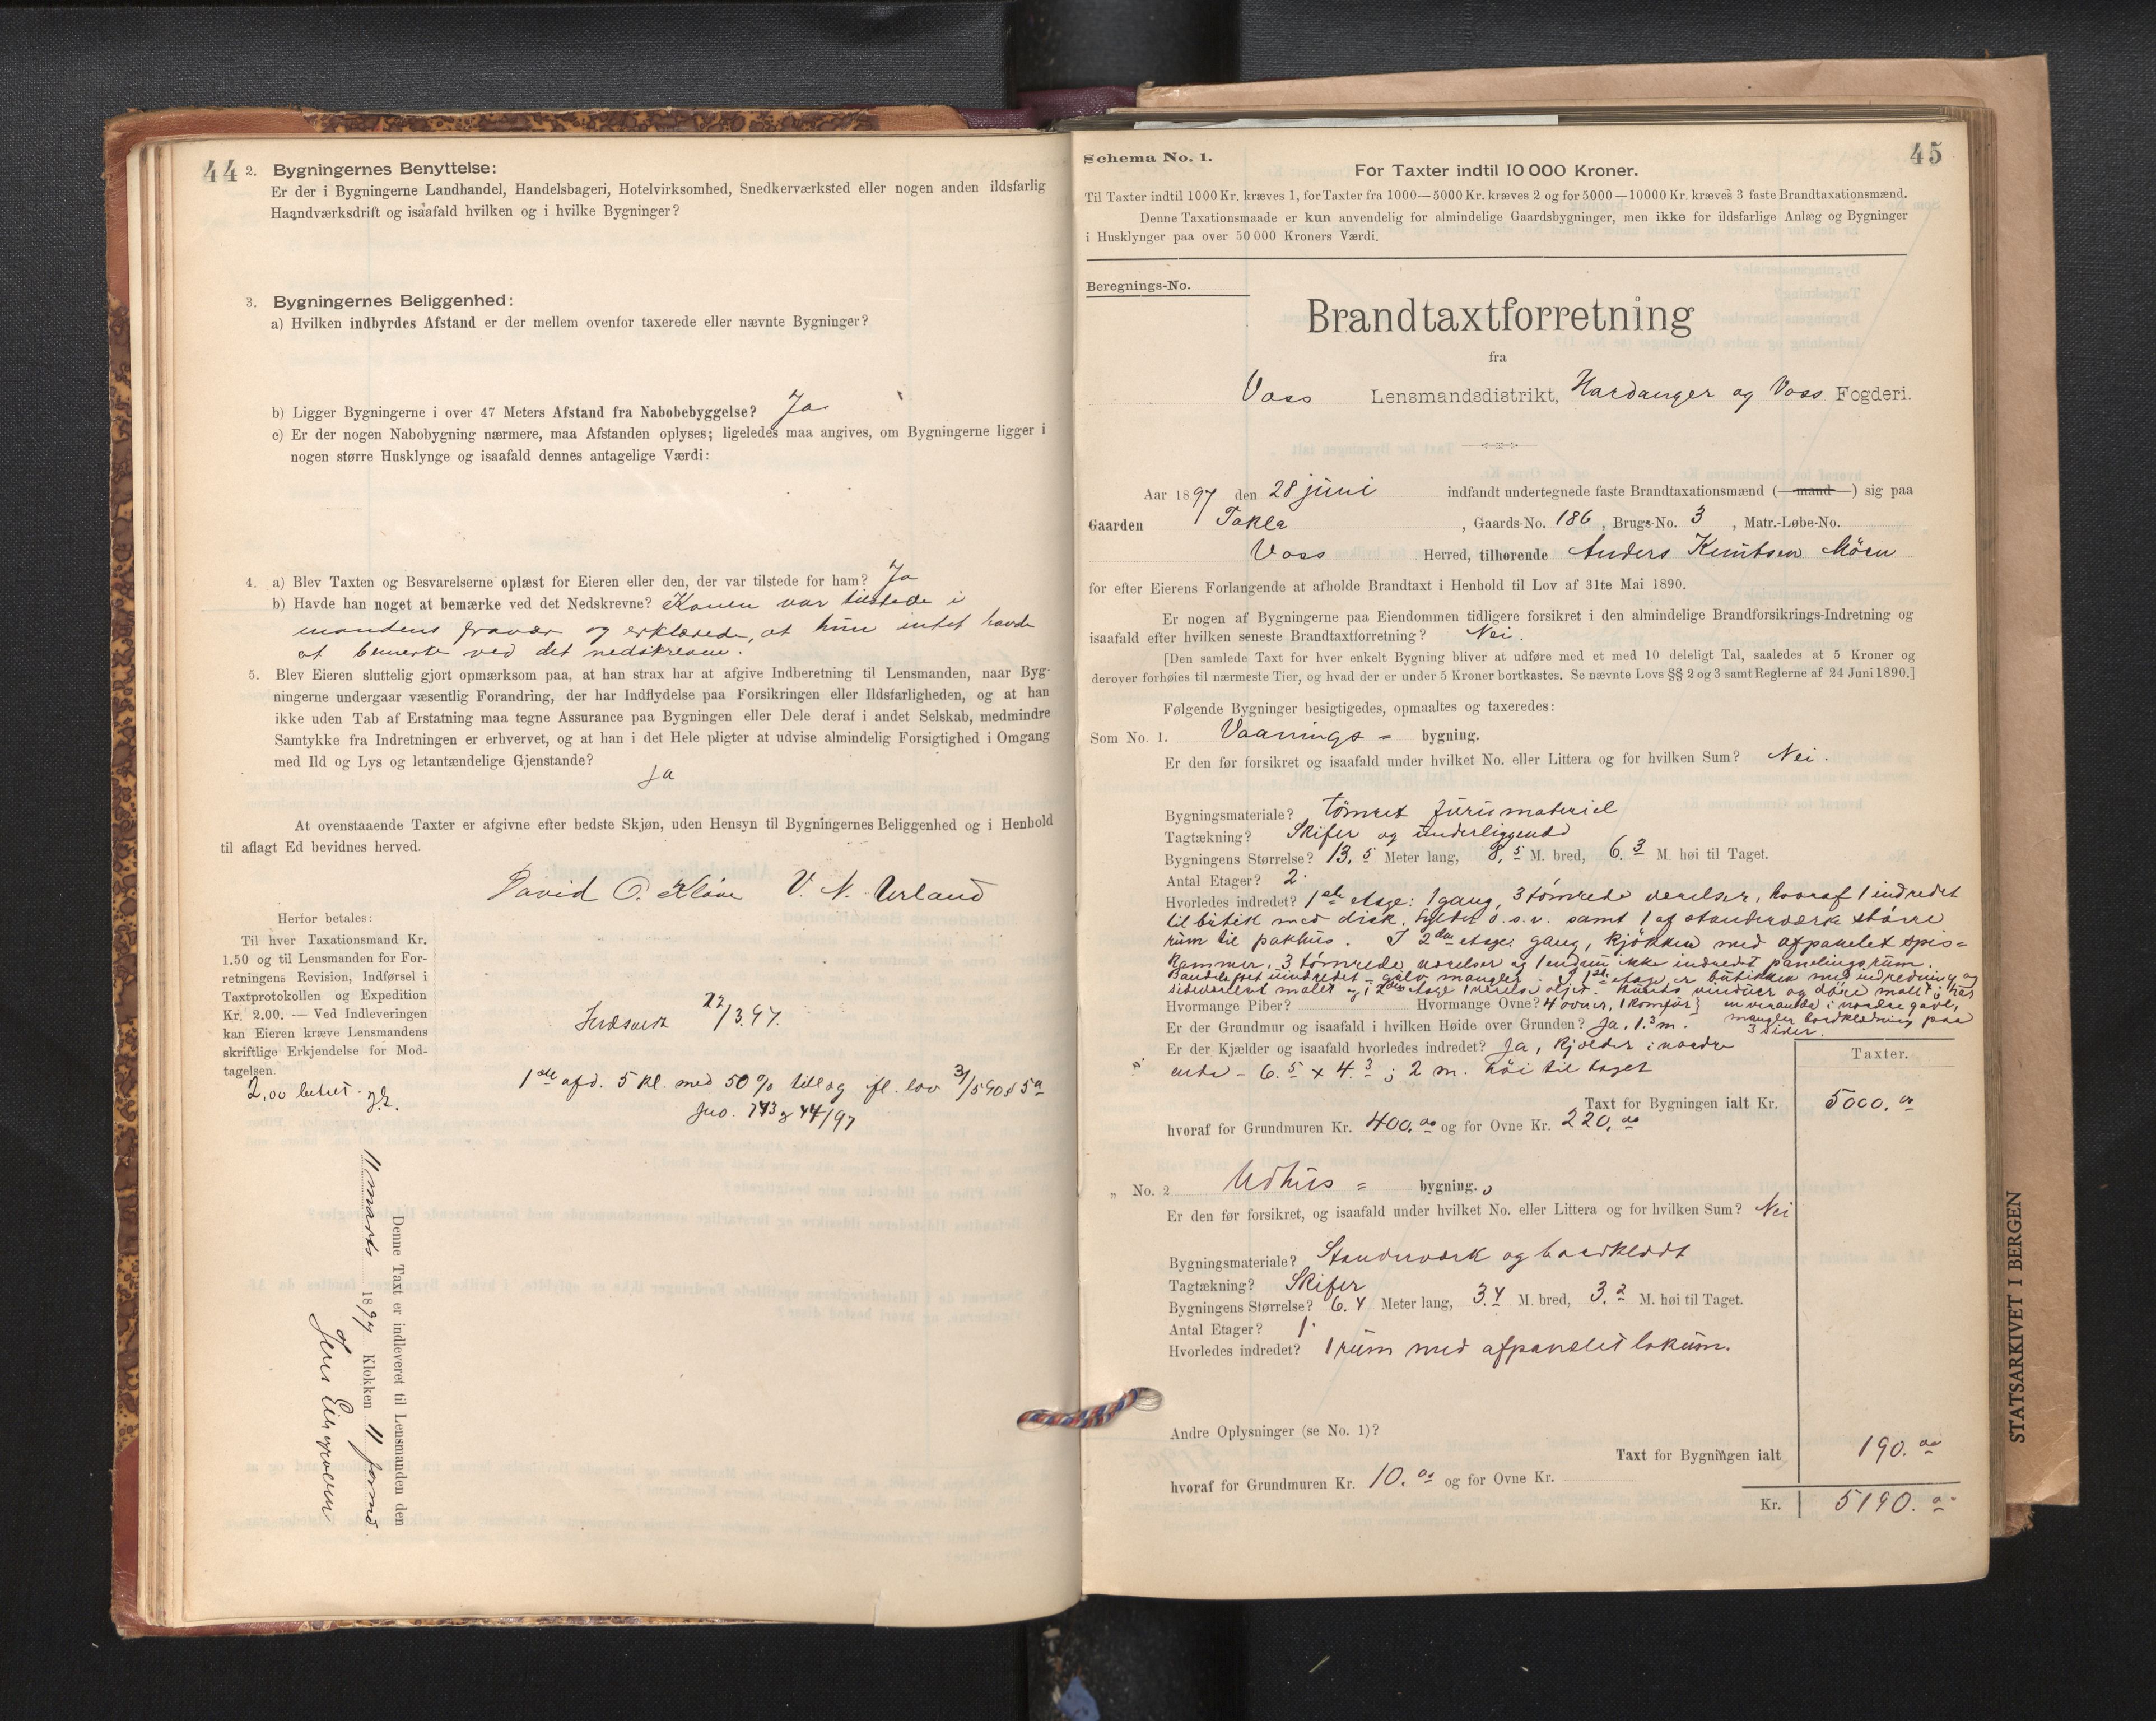 44
2. Bygningernes Benyttelse:
Er der i Bygningerne Landhandel, Handelsbageri, Hotelvirksomhed, Snedkerværksted eller nogen anden ildsfarlig
Haandværksdrift og isaafald hvilken og i hvilke Bygninger?
3. Bygningernes Beliggenhed:
a) Hvilken indbyrdes Afstand er der mellem ovenfor taxerede eller nævnte Bygninger?
b) Ligger Bygningerne i over 47 Meters Afstand fra Nabobebyggelse? Ja
c) Er der nogen Nabobygning nærmere, maa Afstanden oplyses; ligeledes maa angives, om Bygningerne ligger i
nogen større Husklynge og isaafald dennes antagelige Værdi:
4. a) Blev Taxten og Besvarelserne oplæst for Eieren eller den, der var tilstede for ham? Ja
b) Havde han noget at bemærke ved det Nedskrevne? Konen var tilstede i
mandens fravær og erklærede, at hun intet havde
at bemerke ved det nedskrevne.
5. Blev Eieren sluttelig gjort opmærksom paa, at han strax har at afgive Indberetning til Lensmanden, naar Byg-
ningerne undergaar væsentlig Forandring, der har Indflydelse paa Forsikringen eller Ildsfarligheden, og at han
ikke uden Tab af Erstatning maa tegne Assurance paa Bygningen eller Dele deraf i andet Selskab, medmindre
Samtykke fra Indretningen er erhvervet, og at han i det Hele pligter at udvise almindelig Forsigtighed i Omgang
med Ild og Lys og letantændelige Gjenstande?
Ja
At ovenstaaende Taxter er afgivne efter bedste Skjøn, uden Hensyn til Bygningernes Beliggenhed og i Henhold
til aflagt Ed bevidnes herved.
David O. Kløve V. N. Urland
Herfor betales:
Til hver Taxationsmand Kr.
1.50 og til Lensmanden for For-
retningens Revision, Indførsel i
Taxtprotokollen og Expedition
Kr. 2.00. — Ved Indleveringen
kan Eieren kræve Lensmandens
skriftlige Erkjendelse for Mod-
tagelsen.
2,00 betalt.
Indsendt 22/3.97.
1ste afd. 5 kl. med 50% tillæg fl. lov 31/5 90 § 5 a
Jno. 743 & 44/97
Denne Taxt er indleveret til Lensmanden den
11 marts 1897 Klokken 11 formd.
45
Schema No. 1.
For Taxter indtil 10 000 Kroner.
Til Taxter indtil 1000 Kr. kræves 1, for Taxter fra 1000—5000 Kr. kræves 2 og for 5000—10000 Kr. kræves 3 faste Brandtaxationsmænd.
Denne Taxationsmaade er kun anvendelig for almindelige Gaardsbygninger, men ikke for ildsfarlige Anlæg og Bygninger
i Husklynger paa over 50 000 Kroners Værdi.
Beregnings-No.
Brandtaxtforretning
fra
Voss Lensmandsdistrikt, Hardanger og Voss Fogderi.
Aar 1897 den 28 juni indfandt undertegnede faste Brandtaxationsmænd (—mand—) sig paa
Gaarden Takla, Gaards-No. 186, Brugs-No. 3, Matr.-Løbe-No.
Voss Herred, tilhørende Anders Knutsen Möen
for efter Eierens Forlangende at afholde Brandtaxt i Henhold til Lov af 31te Mai 1890.
Er nogen af Bygningerne paa Eiendommen tidligere forsikret i den almindelige Brandforsikrings-Indretning og
isaafald efter hvilken seneste Brandtaxtforretning? Nei.
[Den samlede Taxt for hver enkelt Bygning bliver at udføre med et med 10 deleligt Tal, saaledes at 5 Kroner og
derover forhøies til nærmeste Tier, og hvad der er under 5 Kroner bortkastes. Se nævnte Lovs §§ 2 og 3 samt Reglerne af 24 Juni 1890.]
Følgende Bygninger besigtigedes, opmaaltes og taxeredes:
Som No. 1. Vaanings - bygning.
Er den før forsikret og isaafald under hvilket No. eller Littera og for hvilken Sum? Nei.
Bygningsmateriale? tømret furumateriel
Tagtækning? Skifer og underliggende
Bygningens Størrelse? 13,5 Meter lang, 8,5 M. bred, 6.3 M. høi til Taget.
Antal Etager? 2.
Hvorledes indredet? 1ste etage: 1 gang, 3 tømrede værelser, hvoraf 1 indredet
til butik med disk, hylder o.s.v. samt 1 af standerværk større
rum til pakhus. I 2den etage: gang, kjøkken med afpanelet spis-
kammer, 3 tømrede værelser og 1 endnu ikke indredet panelingsrum.
Taxter.
Hvormange Piber? Hvormange Ovne? 4 ovner, 1 komfur} en veranda i nordre gavl,
mangler bordklædning paa
3 sider.
Er der Grundmur og isaafald i hvilken Høide over Grunden? Ja, 1.3 m.
Er der Kjælder og isaafald hvorledes indredet? Ja, kjælder i nordre
ende - 6.5 x 4.3; 2 m. høi til taget
Taxt for Bygningen ialt Kr. 5000.00
hvoraf for Grundmuren Kr. 400.00 og for Ovne Kr. 220.00
„ No. 2 Udhus - bygning.
Er den før forsikret, og isaafald under hvilket No. eller Littera og for hvilken Sum? Nei
Bygningsmateriale? Standerværk og bordklædt
Tagtækning? Skifer
Bygningens Størrelse? 6.4 Meter lang, 3.4 M. bred, 3.2 M. høi til Taget.
Antal Etager? 1.
Hvorledes indredet? 1 rum med afpanelet lokum.
Andre Oplysninger (se No. 1)?
Taxt for Bygningen ialt 190.00
hvoraf for Grundmuren Kr. 10.00 og for Ovne Kr.
Kr. 5190.00
STATSARKIVET I BERGEN